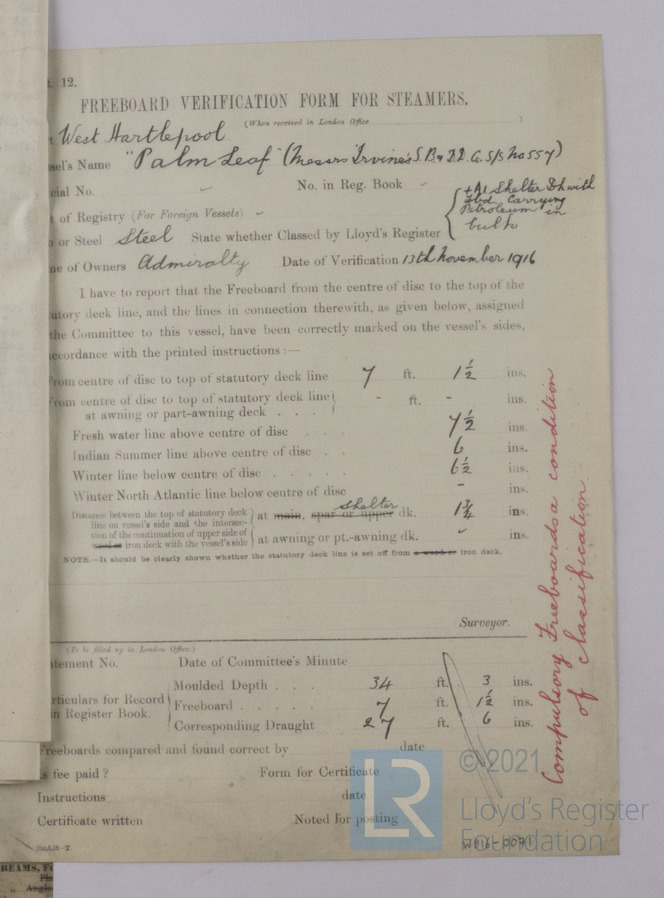 12.
FREEBOARD VERIFICATION FORM FOR STEAMERS.
(When received in London Office )
West Hartlepool
sel's Name "Palm Leaf" (Messrs Irvine's S.B. & D.D. Co. S/S No 557)
cial No. No. in Reg. Book
+A1 Shelter Dk with
Fbd. Carrying
Petroleum in
bulk
of Registry (For Foreign Vessels)
or Steel Steel State whether Classed by Lloyd's Register
me of Owners Admiralty Date of Verification 13th November 1916
I have to report that the Freeboard from the centre of disc to the top of the
tutory deck line, and the lines in connection therewith, as given below, assigned
the Committee to this vessel, have been correctly marked on the vessel's sides,
accordance with the printed instructions :—
From centre of disc to top of statutory deck line 7 ft. 1½ ins.
From centre of disc to top of statutory deck line
at awning or part-awning deck . . . - ft. - ins.
Fresh water line above centre of disc 7½ ins.
Indian Summer line above centre of disc 6 ins.
Winter line below centre of disc 6½ ins.
Winter North Atlantic line below centre of disc - ins.
Distance between the top of statutory deck
line on vessel's side and the intersec-
tion of the continuation of upper side of
wood or iron deck with the vessel's side
at main, spar or upper Shelter dk. 1¾ ins.
at awning or pt.-awning dk. ins.
NOTE.—It should be clearly shown whether the statutory deck line is set off from a wood or iron deck.
Surveyor.
(To be filled up in London Office.)
atement No. Date of Committee's Minute
rticulars for Record
in Register Book.
Moulded Depth . . . 34 ft. 3 ins.
Freeboard . . . . 7 ft. 1½ ins.
Corresponding Draught 27 ft. 6 ins.
Freeboards compared and found correct by date
s fee paid ? Form for Certificate
Instructions date
Certificate written Noted for posting
Compulsory Freeboards a condition
of classification
W916-0071
© 2021
LR
Lloyd's Register
Foundation
BEAMS, F